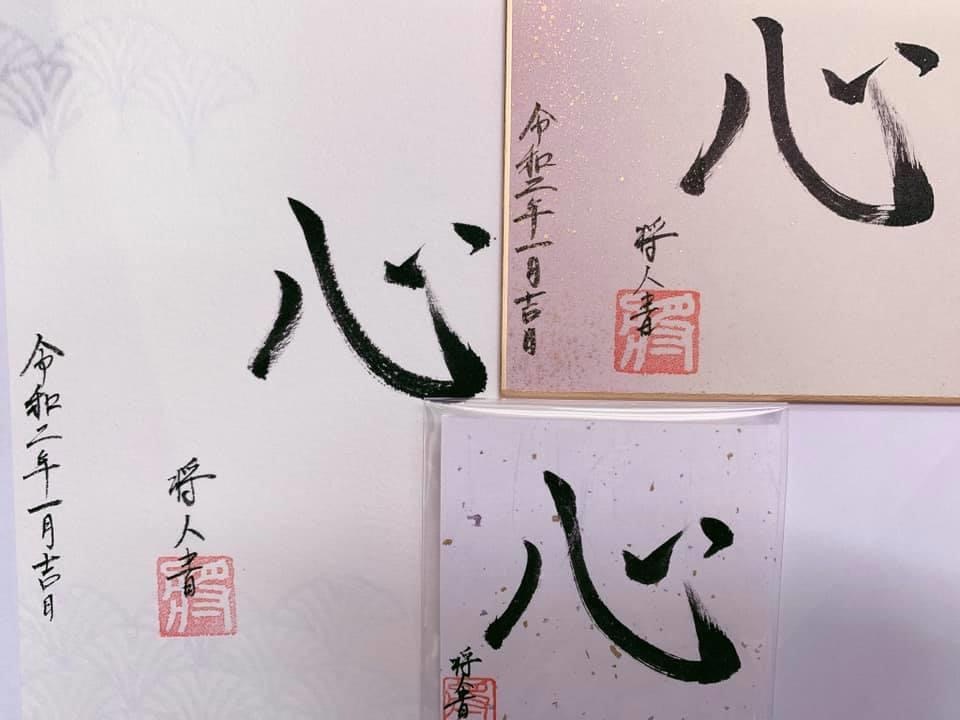 心
令和二年一月吉日
将人書
心
令和二年一月吉日
将人書
心
将人書